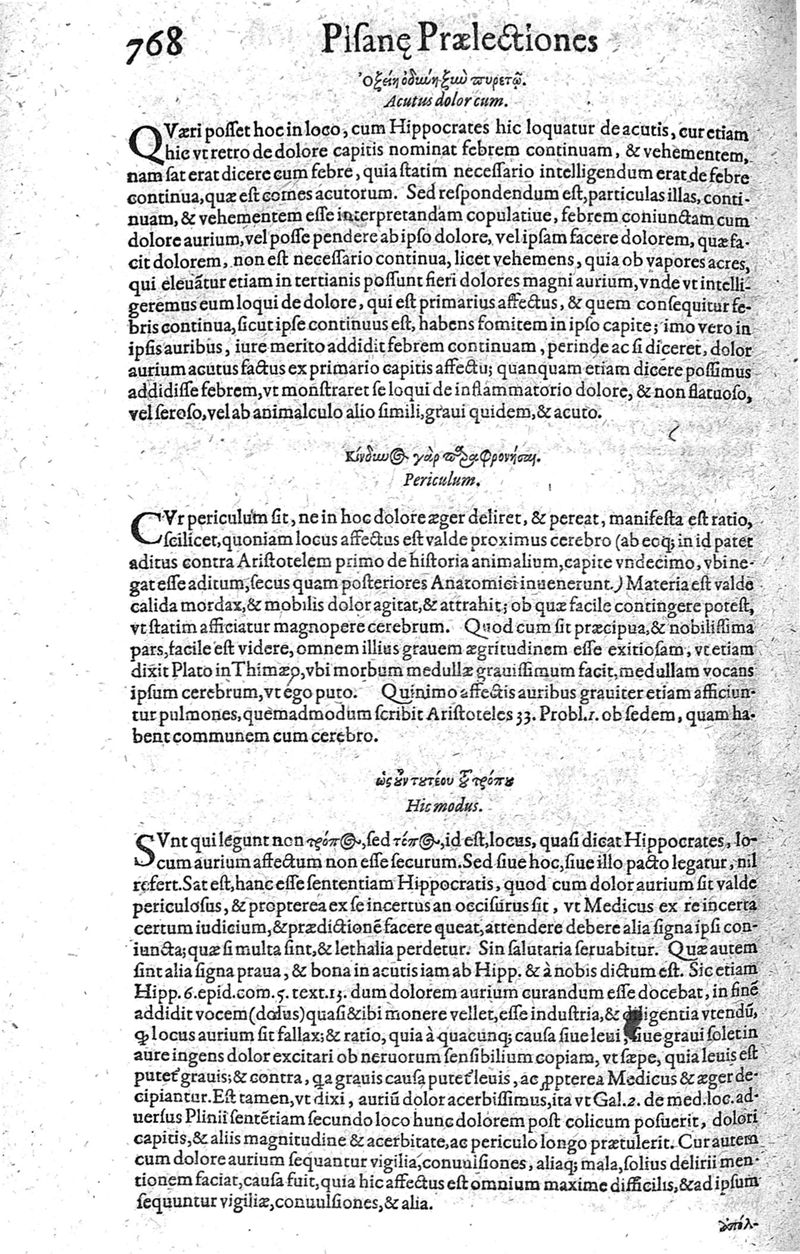 768 Piſanę Prælectiones
Ὀξείη ὀδύνη ξὺν πυρετῷ.
Acutus dolor cum.
QVæri poſſet hoc in loco, cum Hippocrates hic loquatur de acutis, cur etiam
hic vt retro de dolore capitis nominat febrem continuam, & vehementem,
nam ſat erat dicere cum febre, quia ſtatim neceſſario intelligendum erat de febre
continua, quæ eſt comes acutorum. Sed reſpondendum eſt, particulas illas, conti-
nuam, & vehementem eſſe interpretandam copulatiue, febrem coniunctam cum
dolore aurium, vel poſſe pendere ab ipſo dolore, vel ipſam facere dolorem, quæ fa-
cit dolorem, non eſt neceſſario continua, licet vehemens, quia ob vapores acres,
qui eleuãtur etiam in tertianis poſſunt fieri dolores magni aurium, vnde vt intelli-
geremus eum loqui de dolore, qui eſt primarius affectus, & quem conſequitur fe-
bris continua, ſicut ipſe continuus eſt, habens fomitem in ipſo capite; imo vero in
ipſis auribus, iure merito addidit febrem continuam, perinde ac ſi diceret, dolor
aurium acutus factus ex primario capitis affectu; quanquam etiam dicere poſſimus
addidiſſe febrem, vt monſtraret ſe loqui de inflammatorio dolore, & non flatuoſo,
vel ſeroſo, vel ab animalculo alio ſimili, graui quidem, & acuto.
Κίνδυνος γὰρ παραφρονῆσαι.
Periculum.
CVr periculum ſit, ne in hoc dolore æger deliret, & pereat, manifeſta eſt ratio,
ſcilicet, quoniam locus affectus eſt valde proximus cerebro (ab eoq; in id patet
aditus contra Ariſtotelem primo de hiſtoria animalium, capite vndecimo, vbi ne-
gat eſſe aditum, ſecus quam poſteriores Anatomici inuenerunt.) Materia eſt valde
calida mordax, & mobilis dolor agitat, & attrahit; ob quæ facile contingere poteſt,
vt ſtatim afficiatur magnopere cerebrum. Quod cum ſit præcipua, & nobiliſſima
pars, facile eſt videre, omnem illius grauem ægritudinem eſſe exitioſam, vt etiam
dixit Plato in Thimæo, vbi morbum medullæ grauiſſimum facit, medullam vocans
ipſum cerebrum, vt ego puto. Quinimo affectis auribus grauiter etiam afficiun-
tur pulmones, quemadmodum ſcribit Ariſtoteles 33. Probl. 1. ob ſedem, quam ha-
bent communem cum cerebro.
Hic modus.
SVnt qui legunt non τρόπος, ſed τόπος, id eſt, locus, quaſi dicat Hippocrates, lo-
cum aurium affectum non eſſe ſecurum. Sed ſiue hoc, ſiue illo pacto legatur, nil
refert. Sat eſt, hanc eſſe ſententiam Hippocratis, quod cum dolor aurium ſit valde
periculoſus, & propterea ex ſe incertus an occiſurus ſit, vt Medicus ex re incerta
certum iudicium, & prædictionẽ facere queat, attendere debere alia ſigna ipſi con-
iuncta; quæ ſi multa ſint, & lethalia perdetur. Sin ſalutaria ſeruabitur. Quæ autem
ſint alia ſigna praua, & bona in acutis iam ab Hipp. & à nobis dictum eſt. Sic etiam
Hipp. 6. epid. com. 5. text. 13. dum dolorem aurium curandum eſſe docebat, in finẽ
addidit vocem (dolus) quaſi & ibi monere vellet, eſſe induſtria, & diligentia vtendũ,
ꝙ locus aurium ſit fallax; & ratio, quia à quacunq; cauſa ſiue leui, ſiue graui ſolet in
aure ingens dolor excitari ob neruorum ſenſibilium copiam, vt ſæpe, quia leuis eſt
putet᷑ grauis; & contra, q̃a grauis cauſa putet᷑ leuis, ac ꝓpterea Medicus & æger de-
cipiantur. Eſt tamen, vt dixi, auriũ dolor acerbiſſimus, ita vt Gal. 2. de med. loc. ad-
uerſus Plinii ſentẽtiam ſecundo loco hunc dolorem poſt colicum poſuerit, dolori
capitis, & aliis magnitudine & acerbitate, ac periculo longo prætulerit. Cur autem
cum dolore aurium ſequantur vigilia, conuulſiones, aliaq; mala, ſolius delirii men-
tionem faciat, cauſa fuit, quia hic affectus eſt omnium maxime difficilis, & ad ipſum
ſequuntur vigiliæ, conuulſiones, & alia.